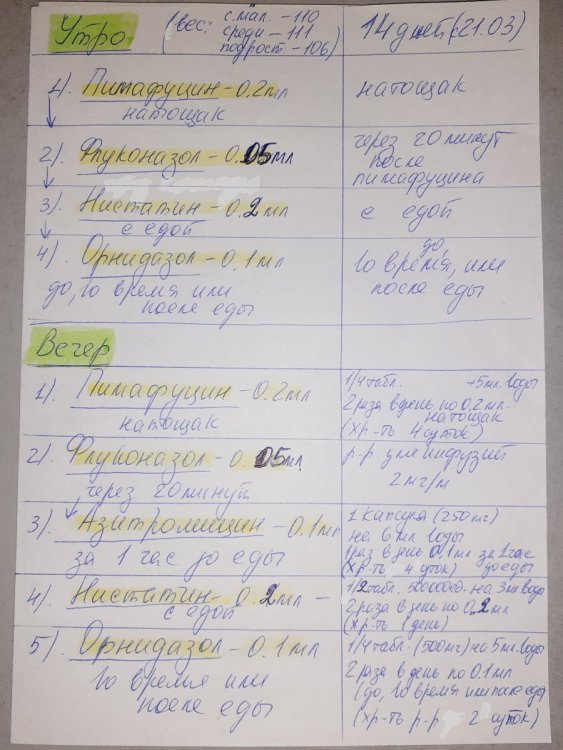 Утро
(вес: с.мал. -110
средн -111
подрост. -106)
14 дней (с 21.03)
1). Пимафуцин - 0.2мл
натощак
натощак
2). Флуконазол - 0.05мл
через 20 минут
после
пимафуцина
3). Нистатин - 0.2мл
с едой
с едой
4). Орнидазол - 0.1мл
до, во время или
после еды
до,
во время, или
после еды
Вечер
1). Пимафуцин - 0.2мл
натощак
1/4 табл. +5мл. воды
2 раза в день по 0.2мл.
натощак
(хр-ть 4 суток)
2). Флуконазол - 0.05мл
через 20 минут
р-р для инфузий
2мг/м
3). Азитромицин - 0.1мл
за 1 час до еды
1 капсула (250мг)
на 6мл воды
1раз в день 0.1мл за 1час
(хр-ть 4 суток) до еды
4). Нистатин - 0.2мл -
с едой
1/2табл. 500000ед. на 3мл. воды
2 раза в день по 0.2мл
(хр-ть 1 день)
5). Орнидазол - 0.1мл
во время или
после еды
1/4табл. (500мг) на 5мл. воды
2 раза в день по 0.1мл
(до, во время или после еды)
(хр-ть р-р 2 суток)